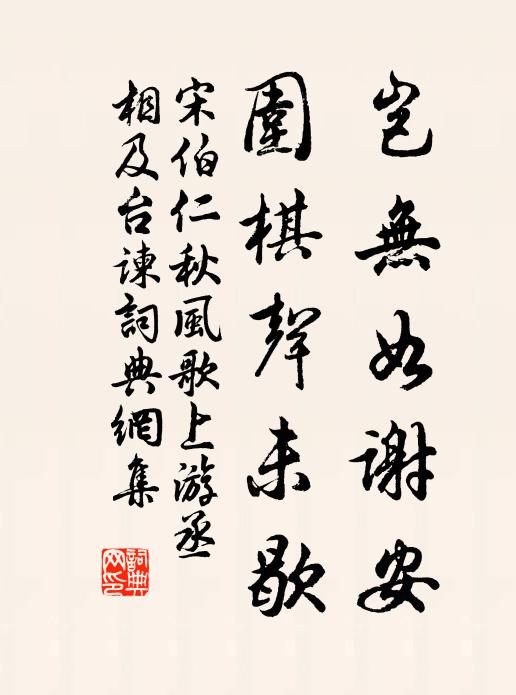 豈無如謝安
圍棋聲未歇
宋伯仁秋風歌上游丞
相及台諫詞典網集
詞典網印